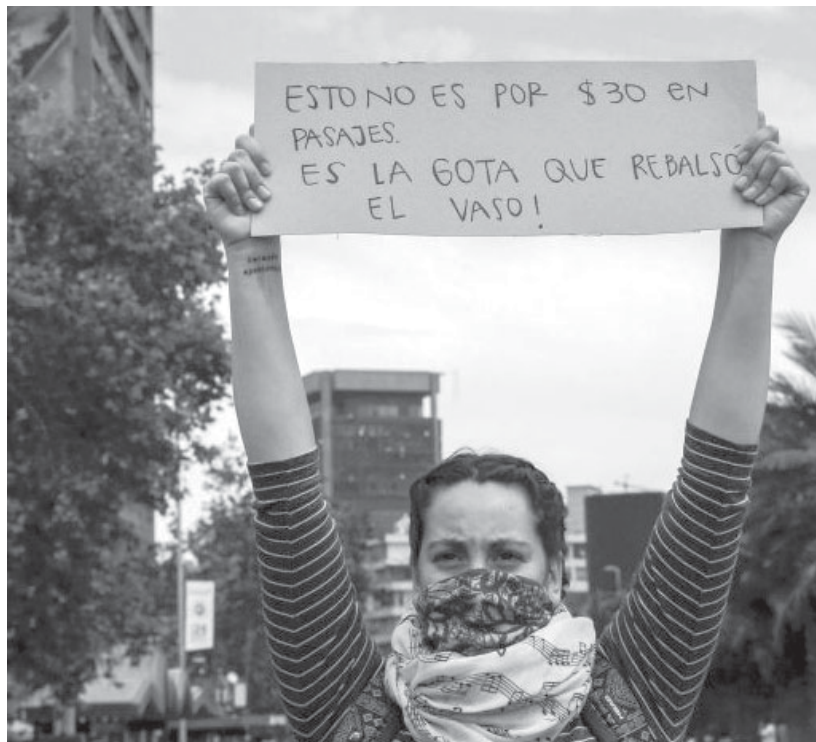 ESTO NO ES POR $30 eN
PASAJES.
ES LA GOTA QUE REBALSÓ
EL VASO!